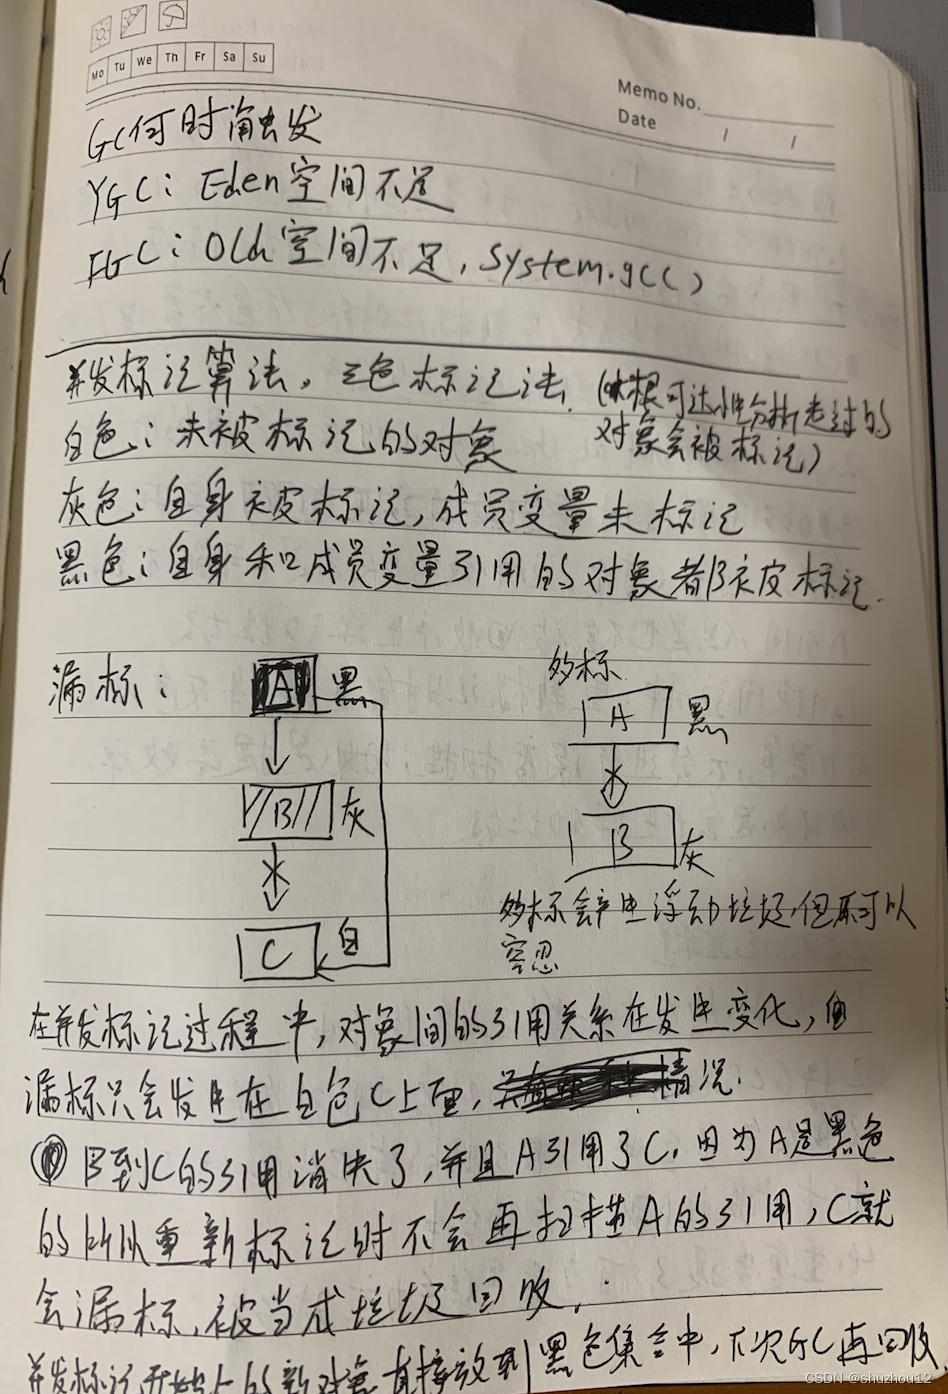 Mo Tu We Th Fr Sa Su
Memo No.
Date / /
GC何时触发
YGC: Eden空间不足
FGC: Old空间不足, System.gc()
并发标记算法, 三色标记法. (从根可达性分析走过的
对象会被标记)
白色: 未被标记的对象
灰色: 自身被标记, 成员变量未标记
黑色: 自身和成员变量引用的对象都被标记.
漏标:
A 黑
B 灰
C 白
多标
A 黑
B 灰
多标会产生浮动垃圾, 但可以
容忍
在并发标记过程中, 对象间的引用关系在发生变化,
漏标只会发生在白色C上面, 情况.
B到C的引用消失了, 并且A引用了C. 因为A是黑色
的所以重新标记时不会再扫描A的引用, C就
会漏标, 被当成垃圾回收.
并发标记开始 的新对象直接放到黑色集合中, 下次GC再回收
CSDN @shuzhou12